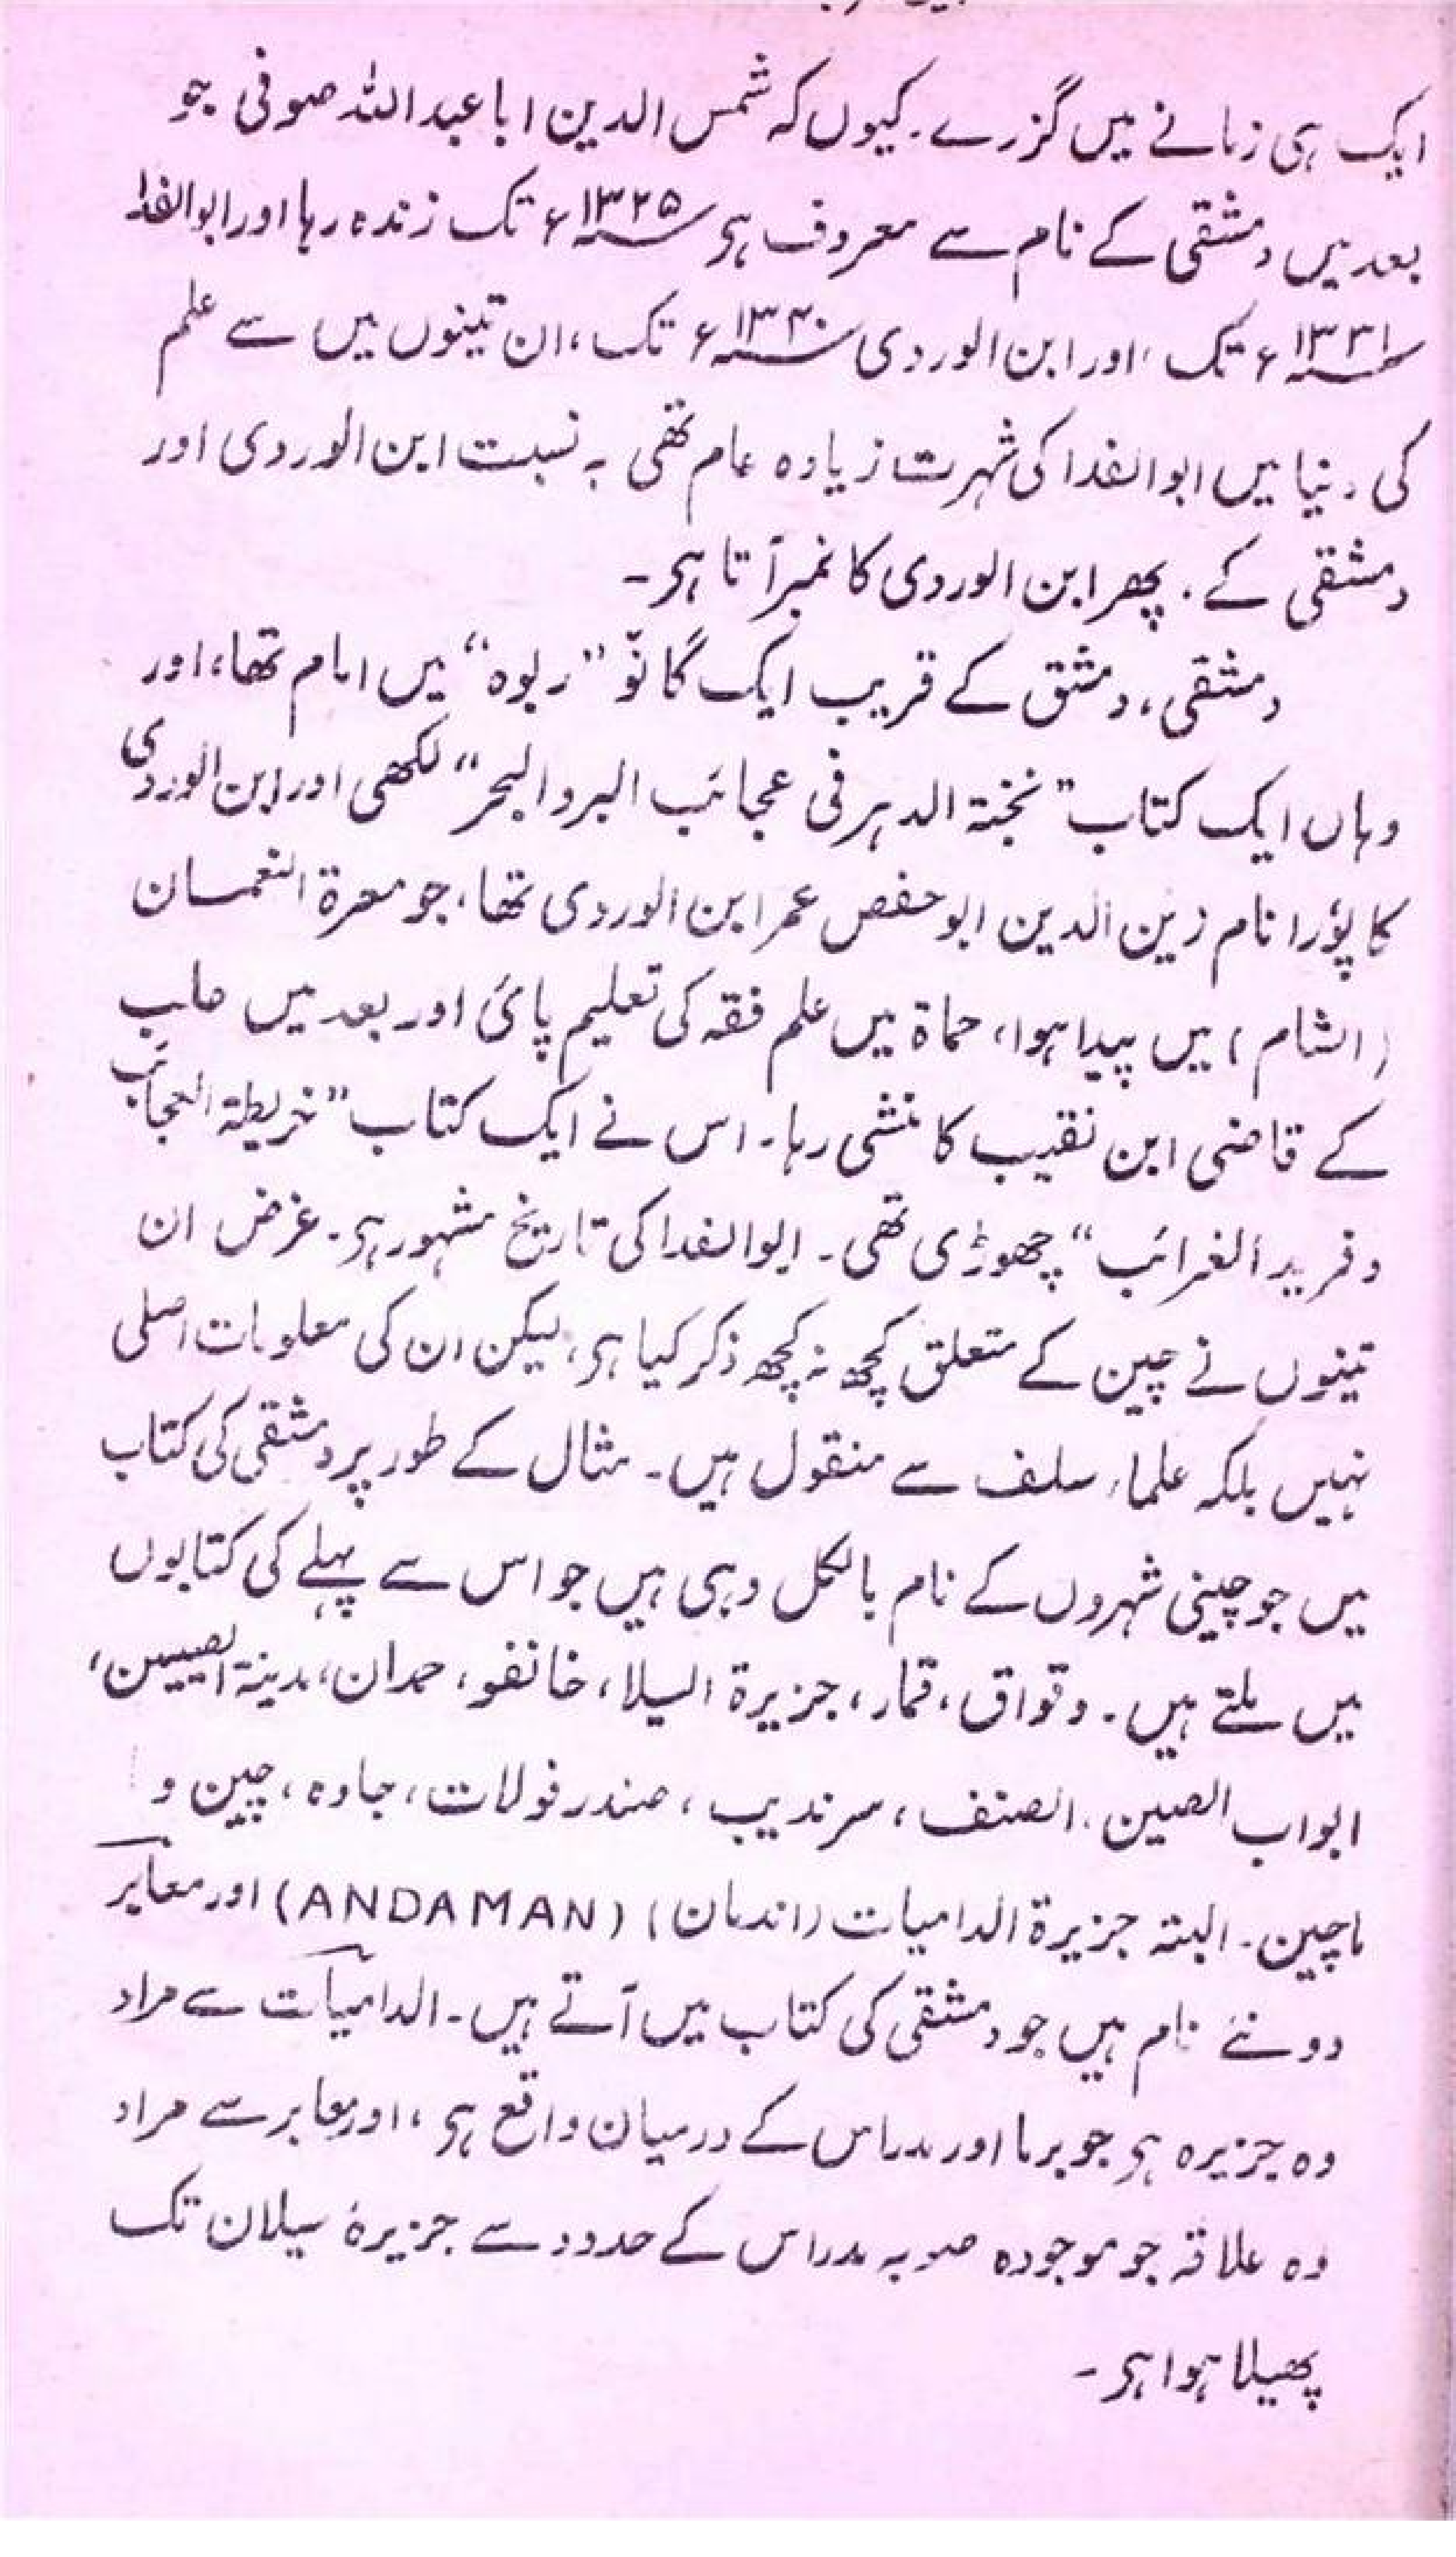 ایک ہی زمانے میں گزرے۔ کیوں کہ شمس الدین ابا عبداللہ صوفی جو
بعد میں دمشقی کے نام سے معروف ہی ۱۳۲۵ء تک زندہ رہا اور ابوالفدا
۱۳۳۱ء تک، اور ابن الوردی ۱۳۴۰ء تک، ان تینوں میں سے علم
کی دنیا میں ابوالفدا کی شہرت زیادہ عام تھی بہ نسبت ابن الوردی اور
دمشقی کے۔ پھر ابن الوردی کا نمبر آتا ہی۔
دمشقی، دمشق کے قریب ایک گانؤ ”ربوہ“ میں امام تھا، اور
وہاں ایک کتاب ”نخبتہ الدہر فی عجائب البر و البحر“ لکھی اور ابن الوردی
کا پؤرا نام زین الدین ابو حفص عمر ابن الوردی تھا، جو معرۃ النعمان
(الشام) میں پیدا ہوا، حماۃ میں علم فقہ کی تعلیم پائی اور بعد میں حلب
کے قاضی ابن نقیب کا منشی رہا۔ اس نے ایک کتاب ”خریطۃ العجائب
و فرید الغرائب“ چھوڑی تھی۔ ابوالفدا کی تاریخ مشہور ہی۔ غرض ان
تینوں نے چین کے متعلق کچھ نہ کچھ ذکر کیا ہی، لیکن ان کی معلومات اصلی
نہیں بلکہ علماء سلف سے منقول ہیں۔ مثال کے طور پر دمشقی کی کتاب
میں جو چینی شہروں کے نام بالکل وہی ہیں جو اس سے پہلے کی کتابوں
میں ملتے ہیں۔ وقواق، قمار، جزیرۃ السیلا، خانفو، حمدان، مدینۃ الصین،
ابواب الصین، الصنف، سرندیب، صندر فولات، جاوہ، چین و
ماچین۔ البتہ جزیرۃ الدامیات (اندمان) (ANDAMAN) اور معابر
دو نئے نام ہیں جو دمشقی کی کتاب میں آتے ہیں۔ الدامیات سے مراد
وہ جزیرہ ہی جو برما اور مدراس کے درمیان واقع ہی، اور معابر سے مراد
وہ علاقہ جو موجودہ صوبہ مدراس کے حدود سے جزیرۂ سیلان تک
پھیلا ہوا ہی۔